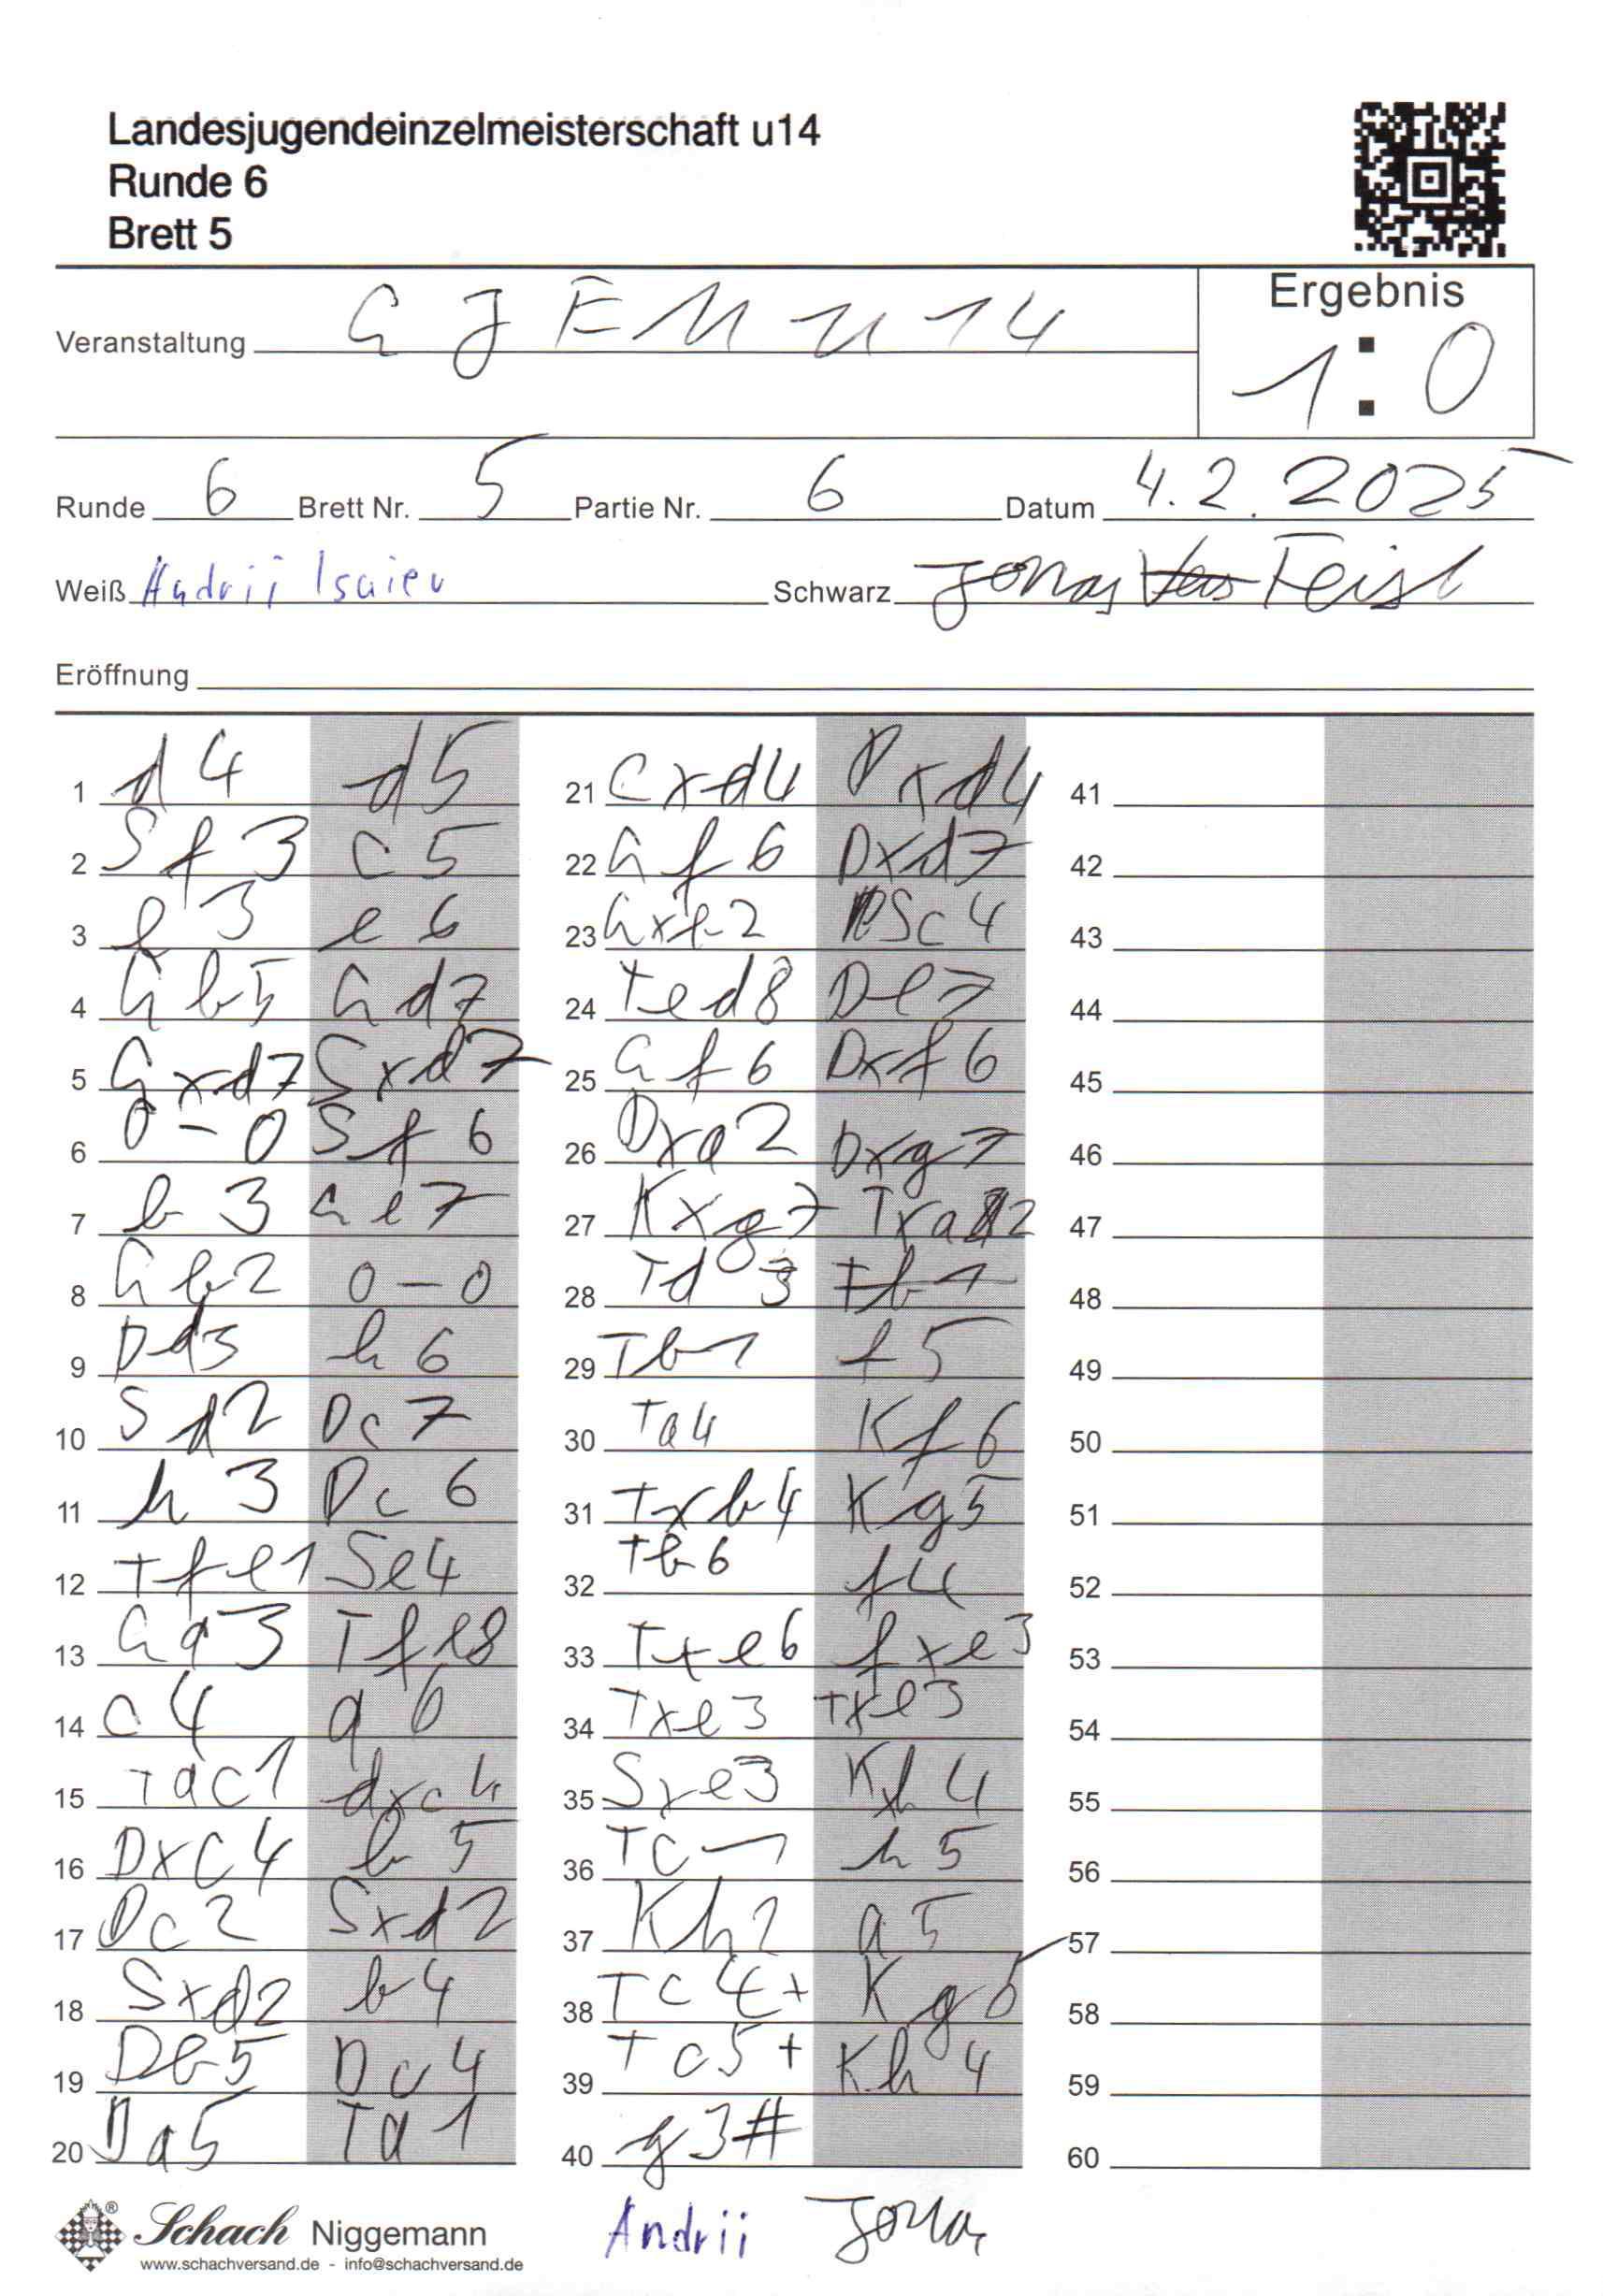 Landesjugendeinzelmeisterschaft u14
Runde 6
Brett 5
Veranstaltung LJEM u14
Ergebnis
1:0
Runde 6 Brett Nr. 5 Partie Nr. 6 Datum 4.2.2025
Weiß Andrii Isaiev Schwarz Jonas Feisl
Eröffnung
1 d4 d5
2 Sf3 c5
3 e3 e6
4 Lb5 Ld7
5 Lxd7 Sxd7
6 0-0 Sf6
7 b3 Le7
8 Lb2 0-0
9 Dd3 h6
10 Sd2 Dc7
11 h3 Dc6
12 Tfe1 Se4
13 La3 Tfe8
14 c4 a6
15 Tac1 dxc4
16 Dxc4 b5
17 Dc2 Sxd2
18 Sxd2 b4
19 Db5 Dc4
20 Da5 Ta1
21 Cxd4 Dxd4
22 Lf6 Dxd7
23 Lxe2 Sc4
24 Ted8 De7
25 Lf6 Dxf6
26 Dxa2 Dxg7
27 Kxg7 Txa2
28 Td3
29 Tb1 f5
30 Ta4 Kf6
31 Txb4 Kg5
32 Tb6 f4
33 Txe6 fxe3
34 Txe3 Txe3
35 Sxe3 Kh4
36 Tc1 h5
37 Kh2 a5
38 Tc4+ Kg5
39 Tc5+ Kh4
40 g3#
41
42
43
44
45
46
47
48
49
50
51
52
53
54
55
56
57
58
59
60
Schach Niggemann
www.schachversand.de - info@schachversand.de
Andrii Jonas